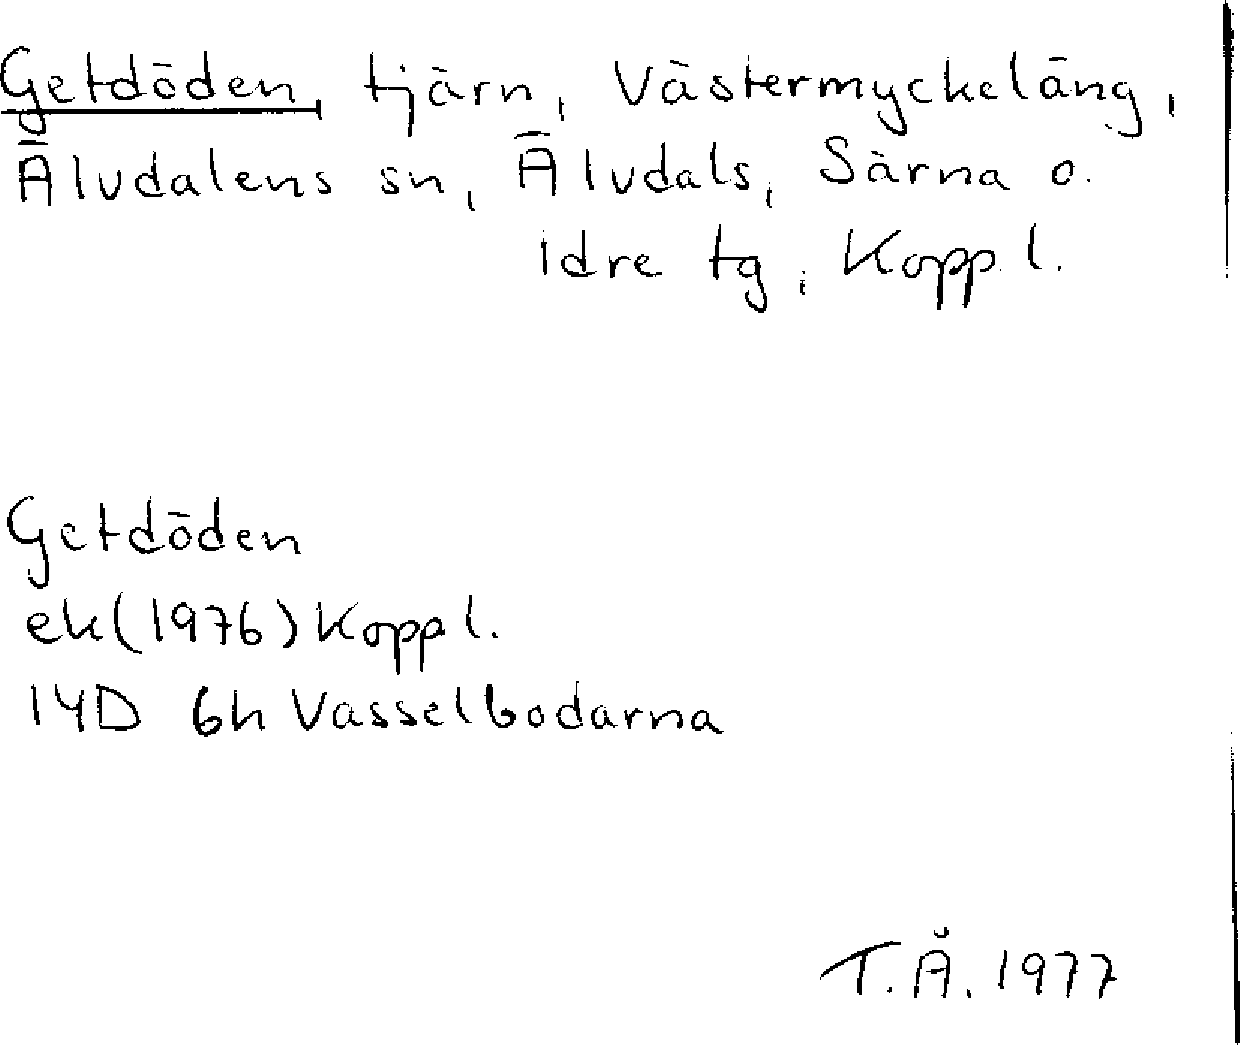 Getdöden, tjärn, Västermyckeläng,
Älvdalens sn, Älvdals, Särna o.
idre tg, Kopp l.
Getdöden
ek (1976) Kopp l.
14D 6h Vasselbodarna
T.Å. 1977